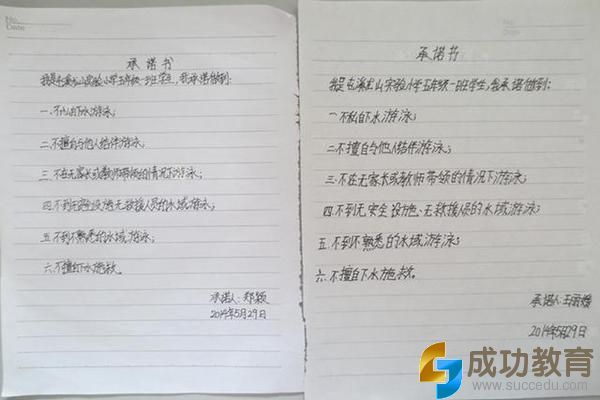 No.
Date
承诺书
我是屯溪龙山实验小学五年级一班学生，我承诺做到：
一.不私下水游泳；
二.不擅自与他人结伴游泳；
三.不在无家长或教师带领的情况下游泳；
四.不到无安全设施、无救援人员的水域游泳；
五.不到不熟悉的水域游泳；
六.不擅自下水施救。
承诺人：郑颖
2014年5月29日
承诺书
我是屯溪龙山实验小学五年级一班学生，我承诺做到：
一.不私下水游泳；
二.不擅自与他人结伴游泳；
三.不在无家长或教师带领的情况下游泳；
四.不到无安全设施、无救援人员的水域游泳；
五.不到不熟悉的水域游泳；
六.不擅自下水施救。
承诺人：王
2014年5月29日
成功教育
www.succedu.com